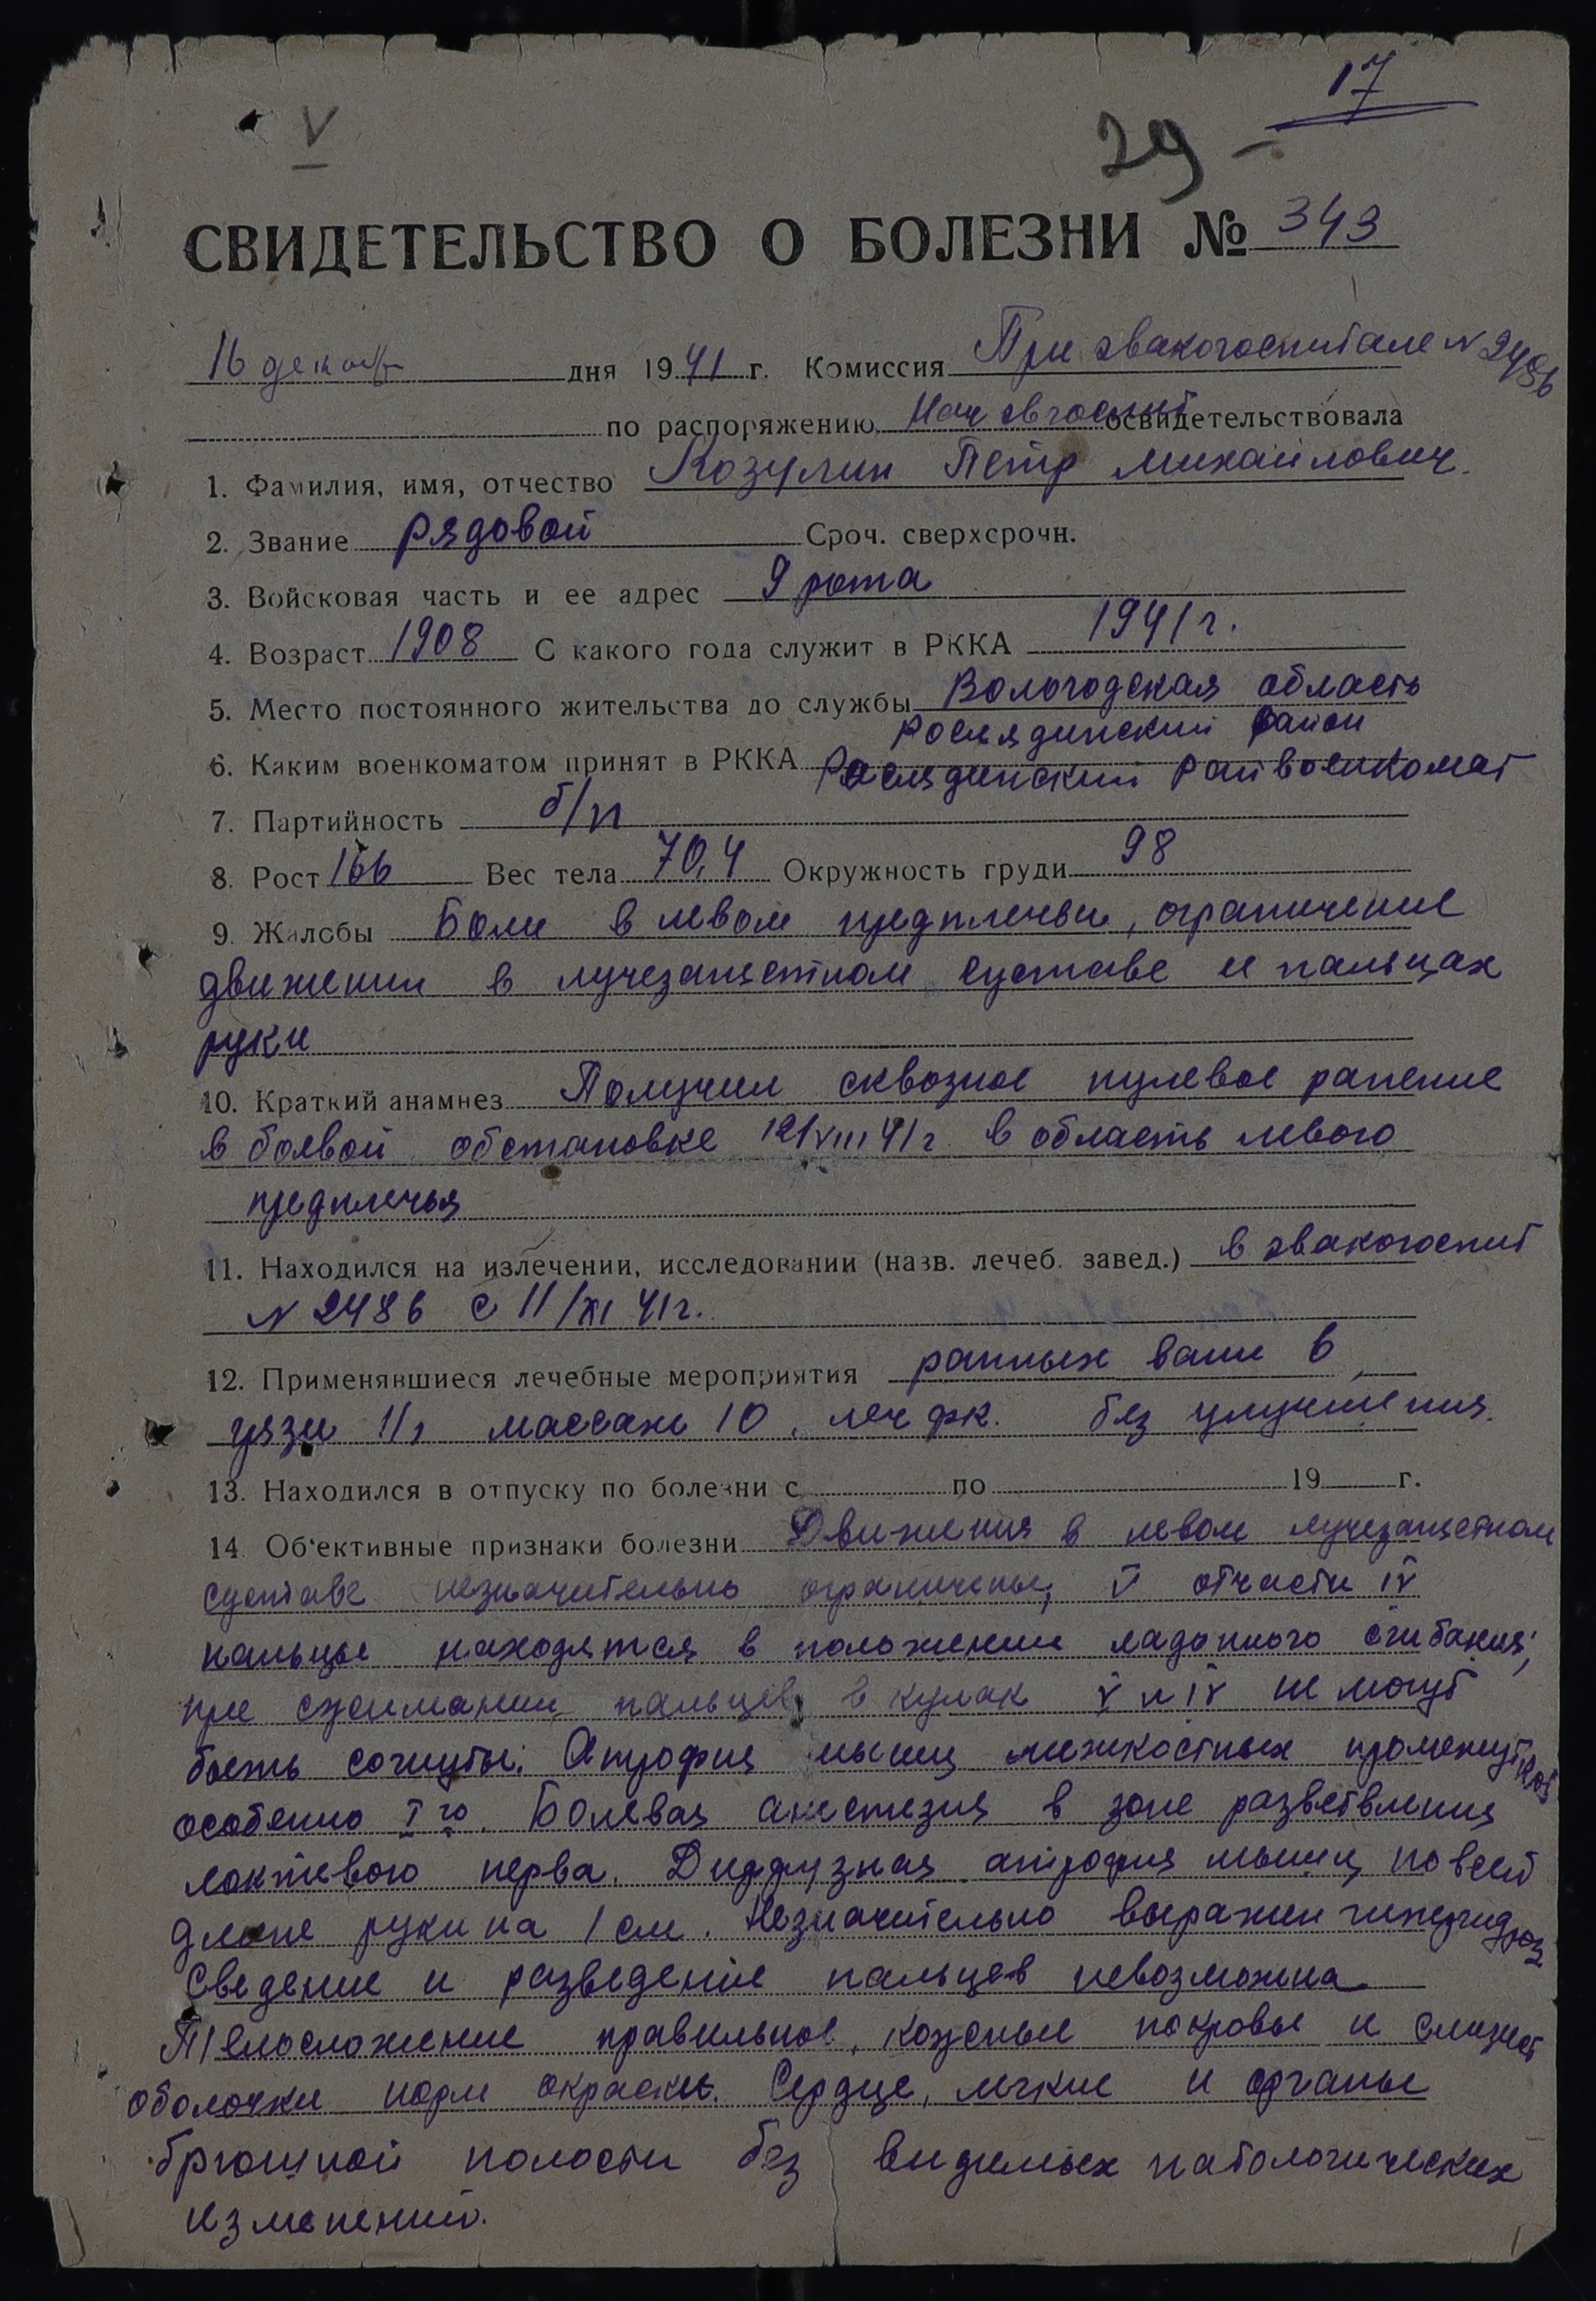 17
V
29 –
СВИДЕТЕЛЬСТВО О БОЛЕЗНИ № 343
16 декаб дня 1941 г. Комиссия При эвакогоспитале N 2486
по распоряжению Нач эвгоспит освидетельствовала
1. Фамилия, имя, отчество Козулин Петр Михайлович.
2. Звание рядовой Сроч. сверхсрочн.
3. Войсковая часть и ее адрес 9 рота
4. Возраст 1908 С какого года служит в РККА 1941 г.
5. Место постоянного жительства до службы Вологодская область
Рослядинский район
6. Каким военкоматом принят в РККА Рослядинский Райвоенкомат
7. Партийность б/п
8. Рост 166 Вес тела 70,4 Окружность груди 98
9. Жалобы Боли в левом предплечьи, ограничение
движении в лучезапястном суставе и пальцах
руки
10. Краткий анамнез Получил сквозное пулевое ранение
в боевой обстановке 12/VIII 41 г. в область левого
предплечья
11. Находился на излечении, исследовании (назв. лечеб. завед.) в эвакогоспит
N 2486 с 11/XI 41 г.
12. Применявшиеся лечебные мероприятия ванн 6,
грязи 11, массаж 10, леч фк. без улучшения.
13. Находился в отпуску по болезни с по 19 г.
14. Об'ективные признаки болезни Движения в левом лучезапястном
суставе незначительно ограничены, V отчасти IV
пальцы находятся в положении ладонного сгибания;
при сжимании пальцев в кулак V и IV не могут
быть согнуты. Атрофия мышц межкостных промежутков
особенно I го. Болевая анестезия в зоне разветвления
локтевого нерва. Диффузная атрофия мышц по всей
длине руки на 1 см. Незначительно выражен гипергидроз
Сведение и разведение пальцев невозможна
Телосложение правильное, кожные покровы и слизист
оболочки норм окраски. Сердце, легкие и органы
брюшной полости без видимых патологических
изменений.